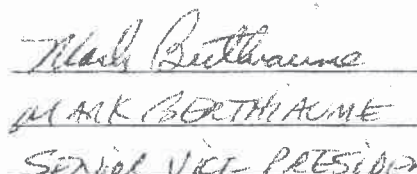 Mark Berthiaume
MARK BERTHIAUME
SENIOR VICE PRESIDE